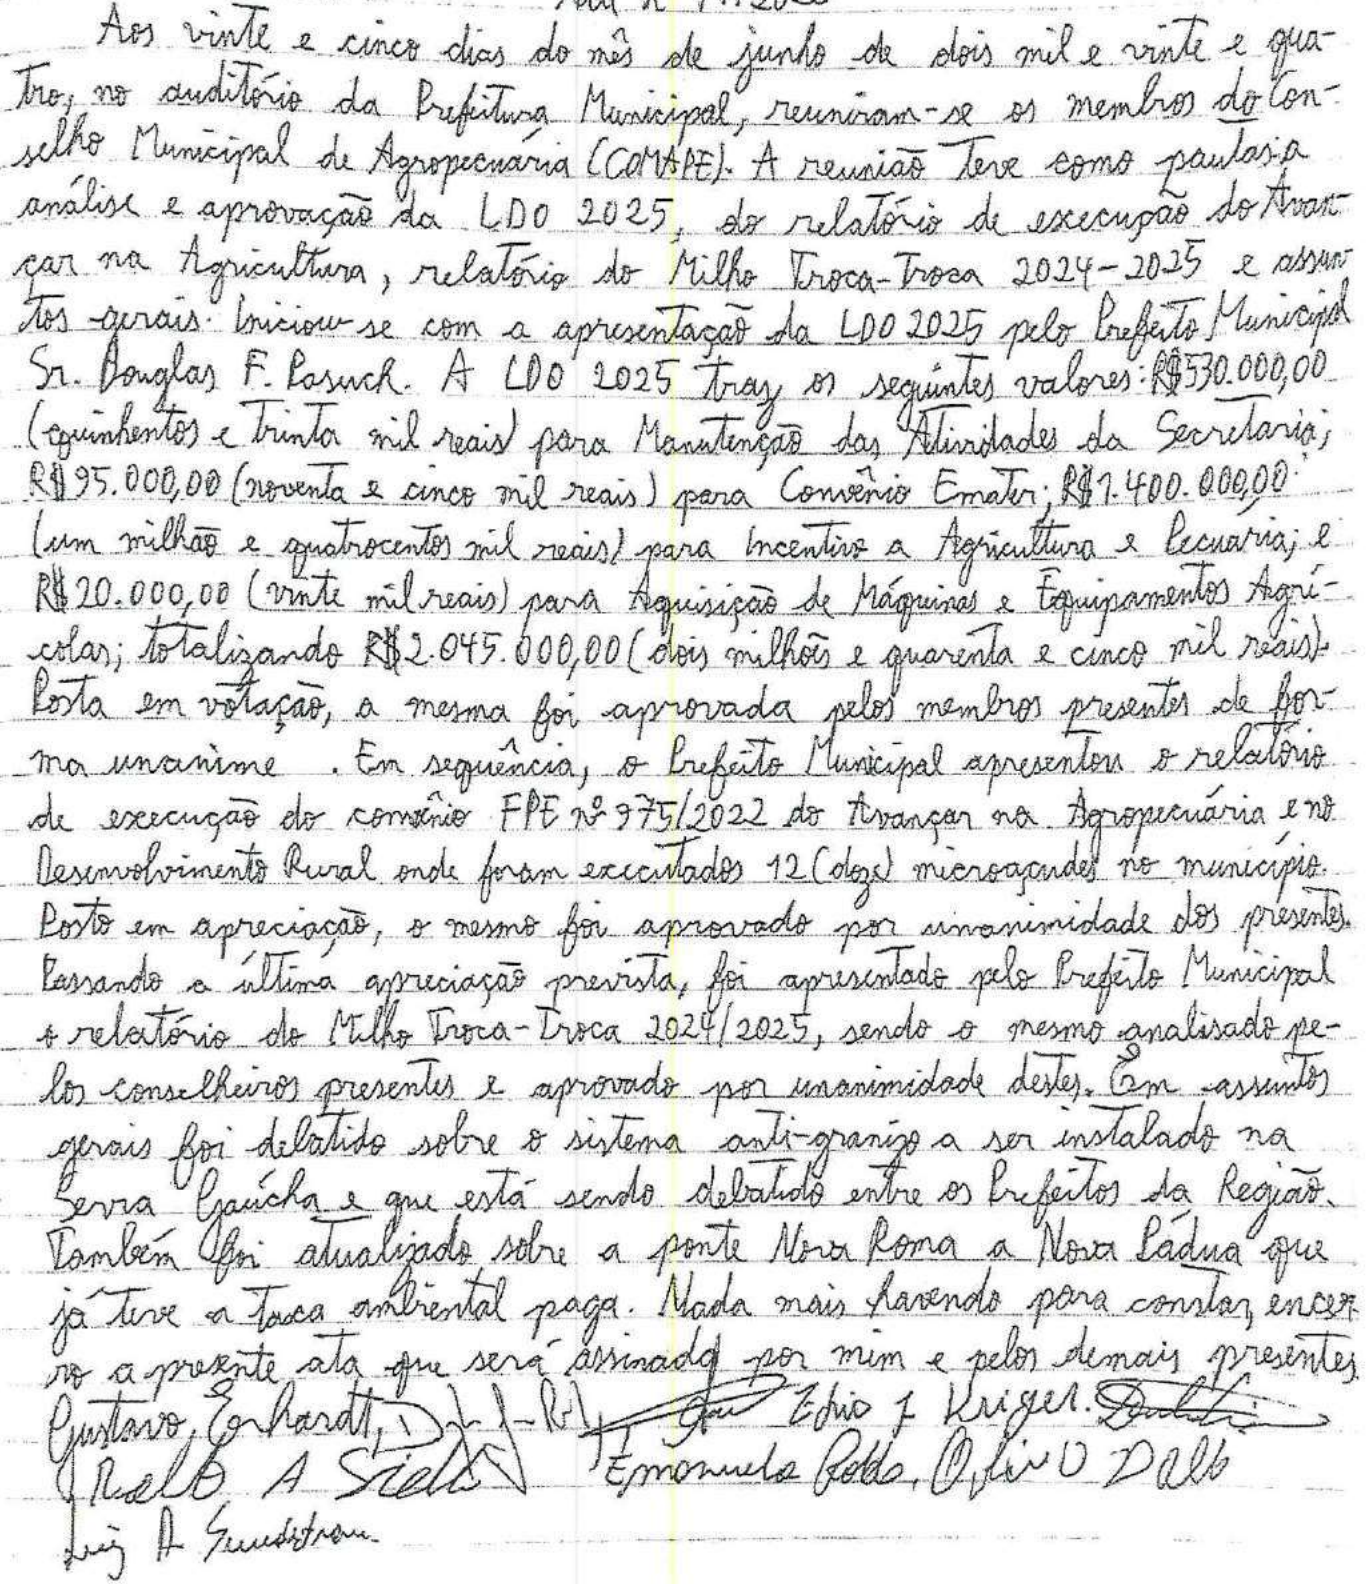 Aos vinte e cinco dias do mês de junho de dois mil e vinte e qua-
tro, no auditório da Prefeitura Municipal, reuniram-se os membros do Con-
selho Municipal de Agropecuária (COMAPE). A reunião teve como pautas a
análise e aprovação da LDO 2025, do relatório de execução do Avan-
çar na Agricultura, relatório do Milho Troca-Troca 2024-2025 e assun-
tos gerais. Iniciou-se com a apresentação da LDO 2025 pelo Prefeito Municipal
Sr. Douglas F. Pasuch. A LDO 2025 traz os seguintes valores: R$530.000,00
(quinhentos e trinta mil reais) para Manutenção das Atividades da Secretaria;
R$95.000,00 (noventa e cinco mil reais) para Convênio Emater; R$1.400.000,00
(um milhão e quatrocentos mil reais) para Incentivo a Agricultura e Pecuária; e
R$20.000,00 (vinte mil reais) para Aquisição de Máquinas e Equipamentos Agrí-
colas; totalizando R$2.045.000,00 (dois milhões e quarenta e cinco mil reais).
Posta em votação, a mesma foi aprovada pelos membros presentes de for-
ma unanime. Em sequência, o Prefeito Municipal apresentou o relatório
de execução do convênio FPE nº 975/2022 do Avançar na Agropecuária e no
Desenvolvimento Rural onde foram executados 12 (doze) microaçudes no município.
Posto em apreciação, o mesmo foi aprovado por unanimidade dos presentes.
Passando a última apreciação prevista, foi apresentado pelo Prefeito Municipal
o relatório do Milho Troca-Troca 2024/2025, sendo o mesmo analisado pe-
los conselheiros presentes e aprovado por unanimidade destes. Em assuntos
gerais foi debatido sobre o sistema anti-granizo a ser instalado na
Serra Gaúcha e que está sendo debatido entre os Prefeitos da Região.
Também foi atualizado sobre a ponte Nova Roma a Nova Pádua que
já teve a taxa ambiental paga. Nada mais havendo para constar, encer-
ro a presente ata que será assinada por mim e pelos demais presentes.
Gustavo Erhardt, Edio J Kriger.
A Emanuela
Luiz A